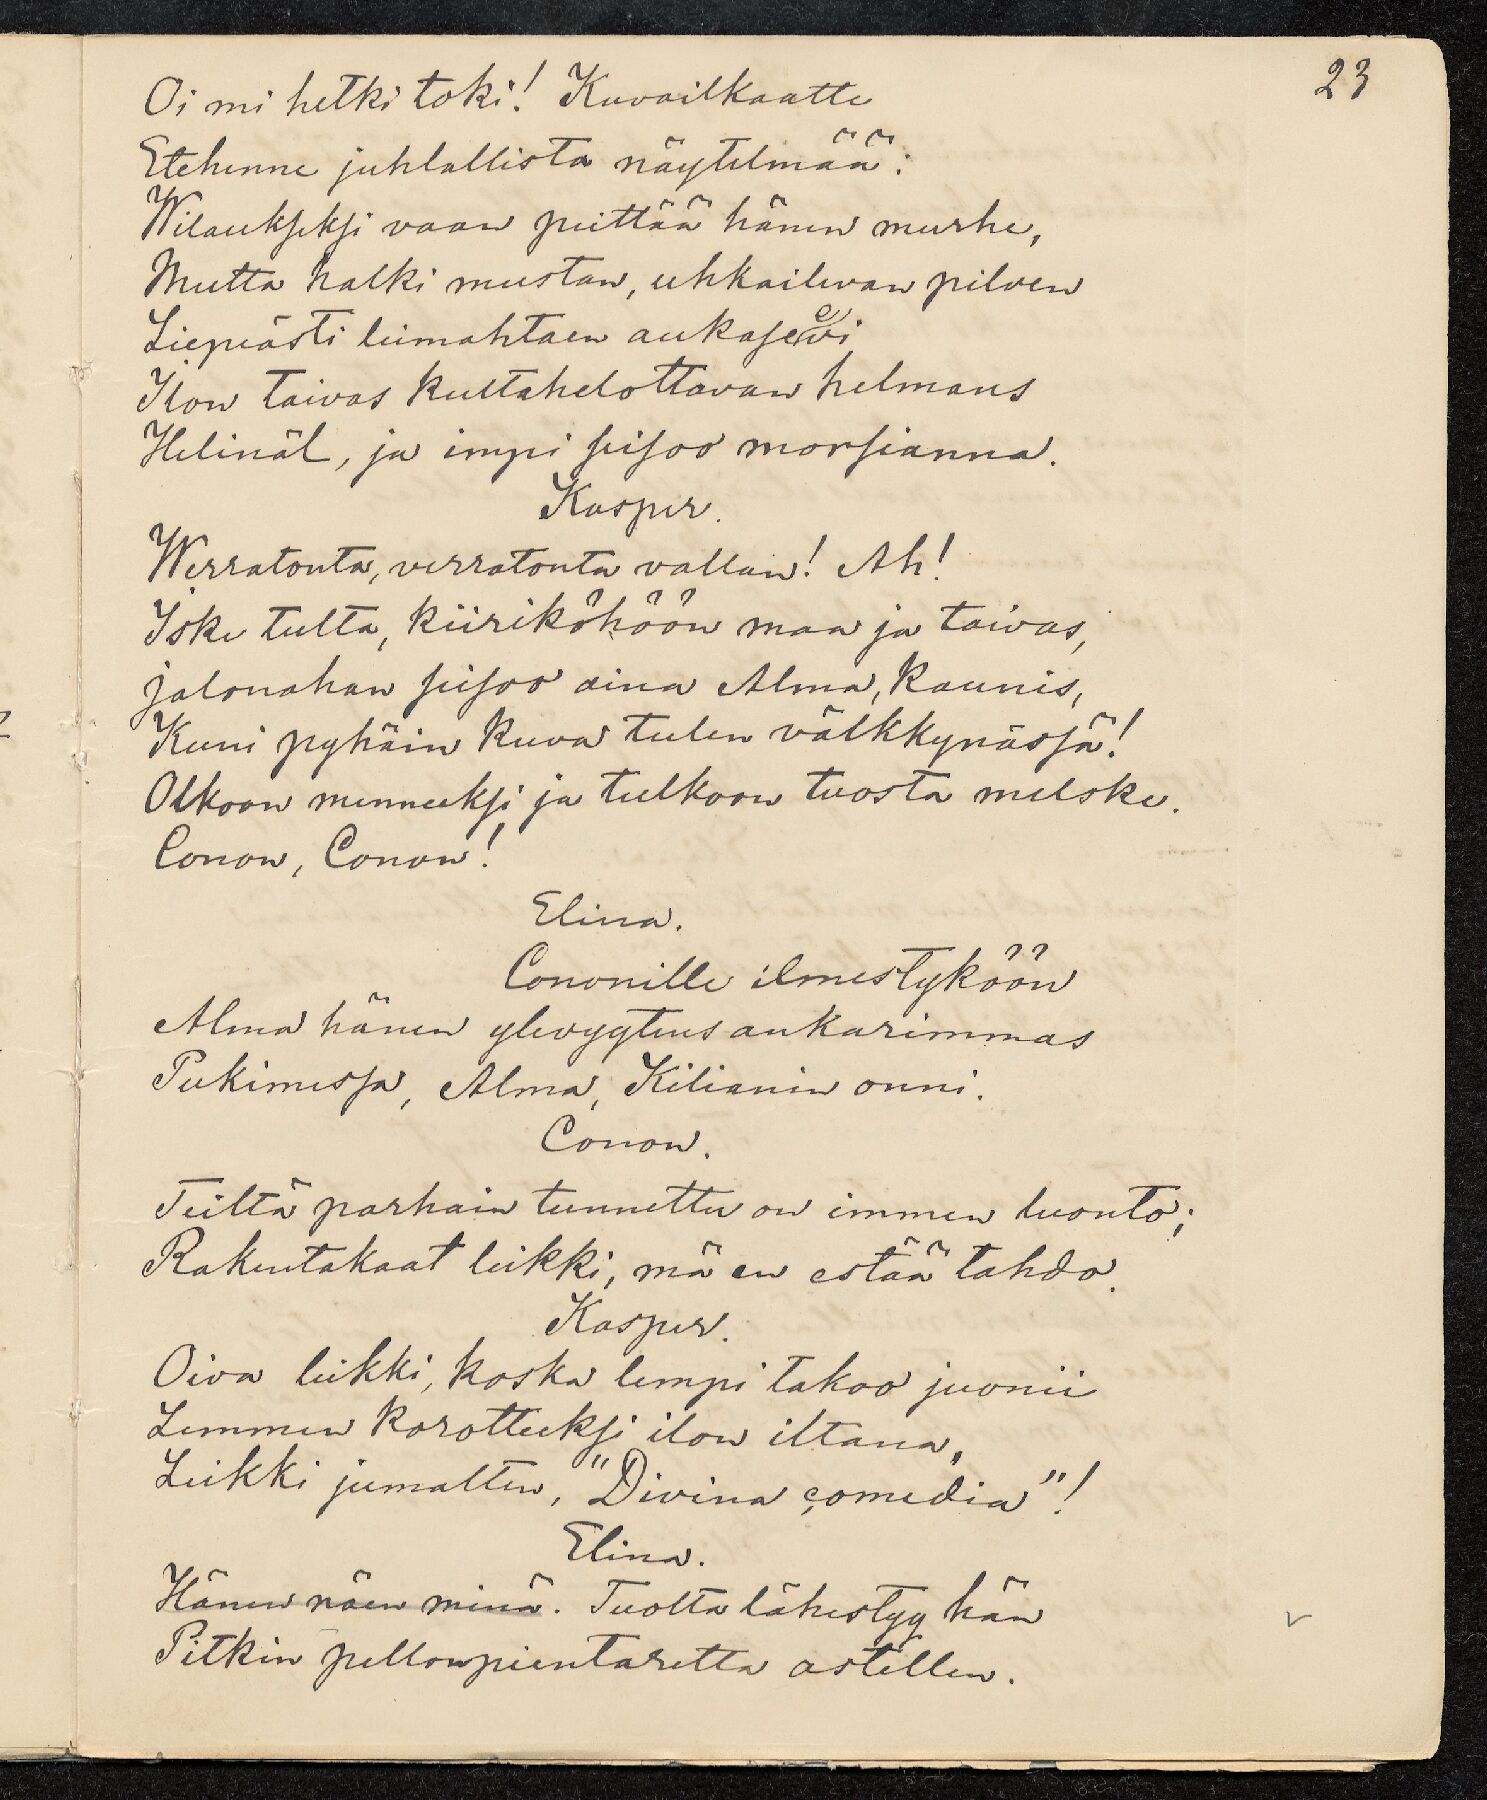 23
Oi mi hetki toki! Kuvailkaatte
Etehenne juhlallista näytelmää:
Wilaukseksi vaan peittää hänen murhe,
Mutta halki mustan, uhkailevan pilven
Liepeästi leimahtaen aukaseevi
Ilon taivas kultahelottavan helmans
Helinäl, ja impi seisoo morsianna.
Kasper.
Werratonta, verratonta vallan! Ah!
Iske tulta, kiiriköhöön maa ja taivas,
jalonahan seisoo aina Alma, kaunis,
Kuni pyhäin kuva tulen välkkynässä!
Olkoon menneeksi ja tulkoon tuosta melske.
Conon, Conon!
Elina.
Cononille ilmestyköön
Alma hänen ylevyytens ankarimmas
Pukimessa, Alma, Kilianin onni.
Conon.
Teiltä parhain tunnettu on immen luonto;
Rakentakaat leikki, mä en estää tahdo.
Kasper.
Oiva leikki, koska lempi takoo juonii
Lemmen korotteeksi ilon iltana,
Leikki jumalten, "Divina comedia"!
Elina.
Hänen näen minä. Tuolta lähestyy hän
Pitkin pellonpientaretta astellen.